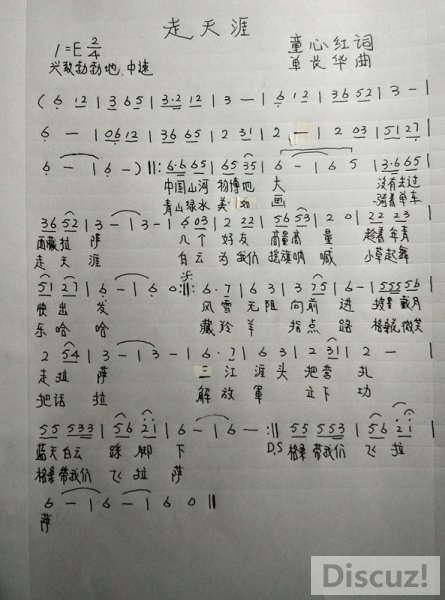 走天涯
1=E 2/4
童心红词
兴致勃勃地 中速
单长华曲
( 6 12 | 3 65 | 3·2 12 | 3 - | 6 12 | 3 65 | 3 52 | 3 - |
6 - | 06 12 | 36 65 | 36 65 | 2 31 | 2 - | 2 03 | 51 27 |
6 - | 6 - ) ||: 6·6 65 | 65 35 | 6 - | 6 5 | 3·6 65 |
中国山河 物博地 大 没有去过
青山绿水 美如 画 骑着单车
36 52 | 3 - | 3 - | 6 03 | 2 22 | 56 53 | 2 0 | 22 23 |
西藏拉 萨 几个好友 商量商 量 趁着年青
走天涯 白云为我们 摇旗呐 喊 小草起舞
51 27 | 6 - | 6 0 :|| 6·7 | 63 | 3·1 | 3 75 | 6 - | 55 55 6 |
快出 发 风雪无阻 向前 进 披星戴月
乐哈 哈 藏羚羊 指点 路 格桑花微笑
2 54 | 3 - | 3 - | 6·7 | 63 | 3·1 | 2 31 | 2 - |
走拉 萨 三江涯头 把营 扎
把话 拉 解放軍 立下 功
55 533 | 56 21 | 6 - | 6 - :|| 55 553 | 56 21 |
蓝天白云 踩脚 下 D.S 格桑带我们 飞拉
格桑带我们 飞拉 萨
6 - | 6 - | 6 - | 6 0 ||
萨
Discuz!